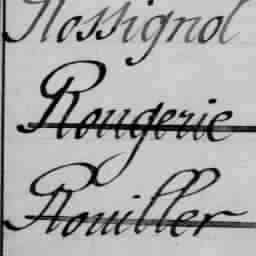 Rossignol
Rougerie
Rouiller